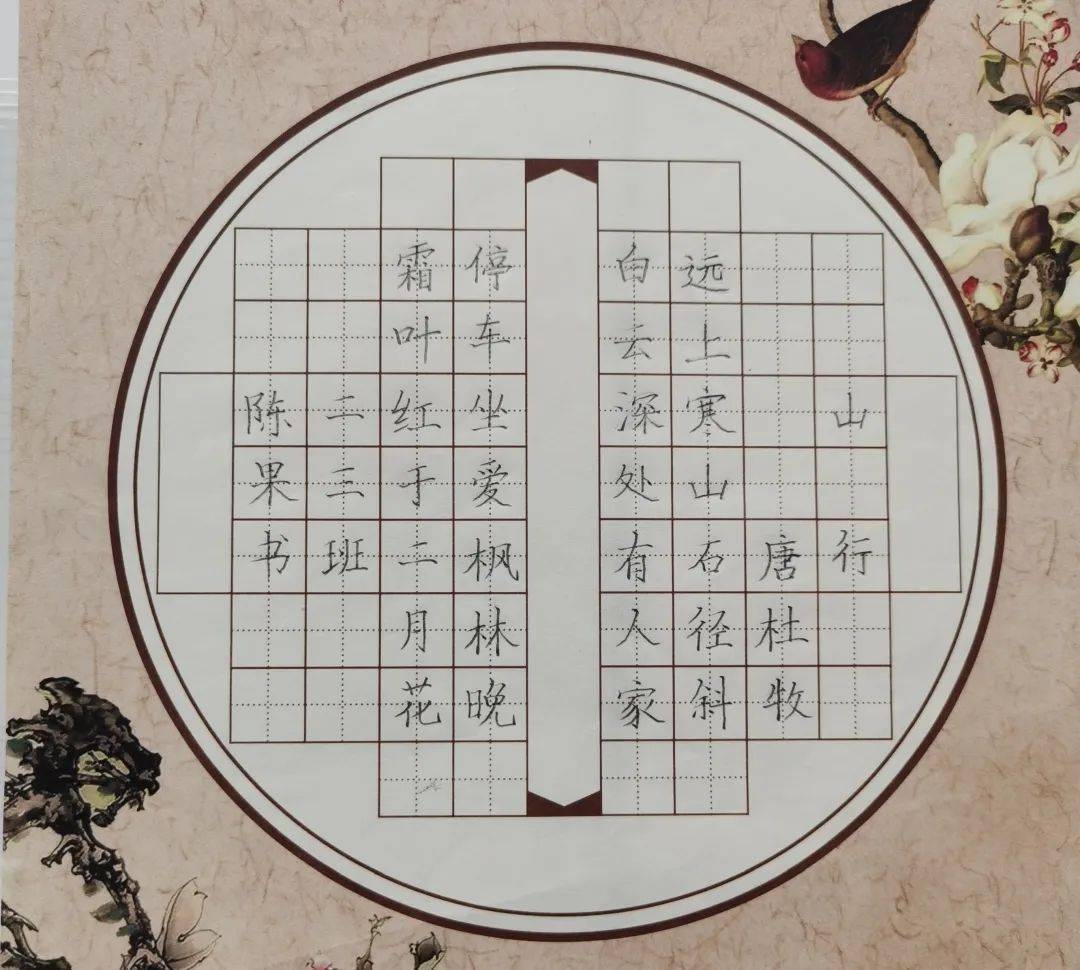 山行
唐杜牧
远上寒山石径斜
白云深处有人家
停车坐爱枫林晚
霜叶红于二月花
二三班
陈果书